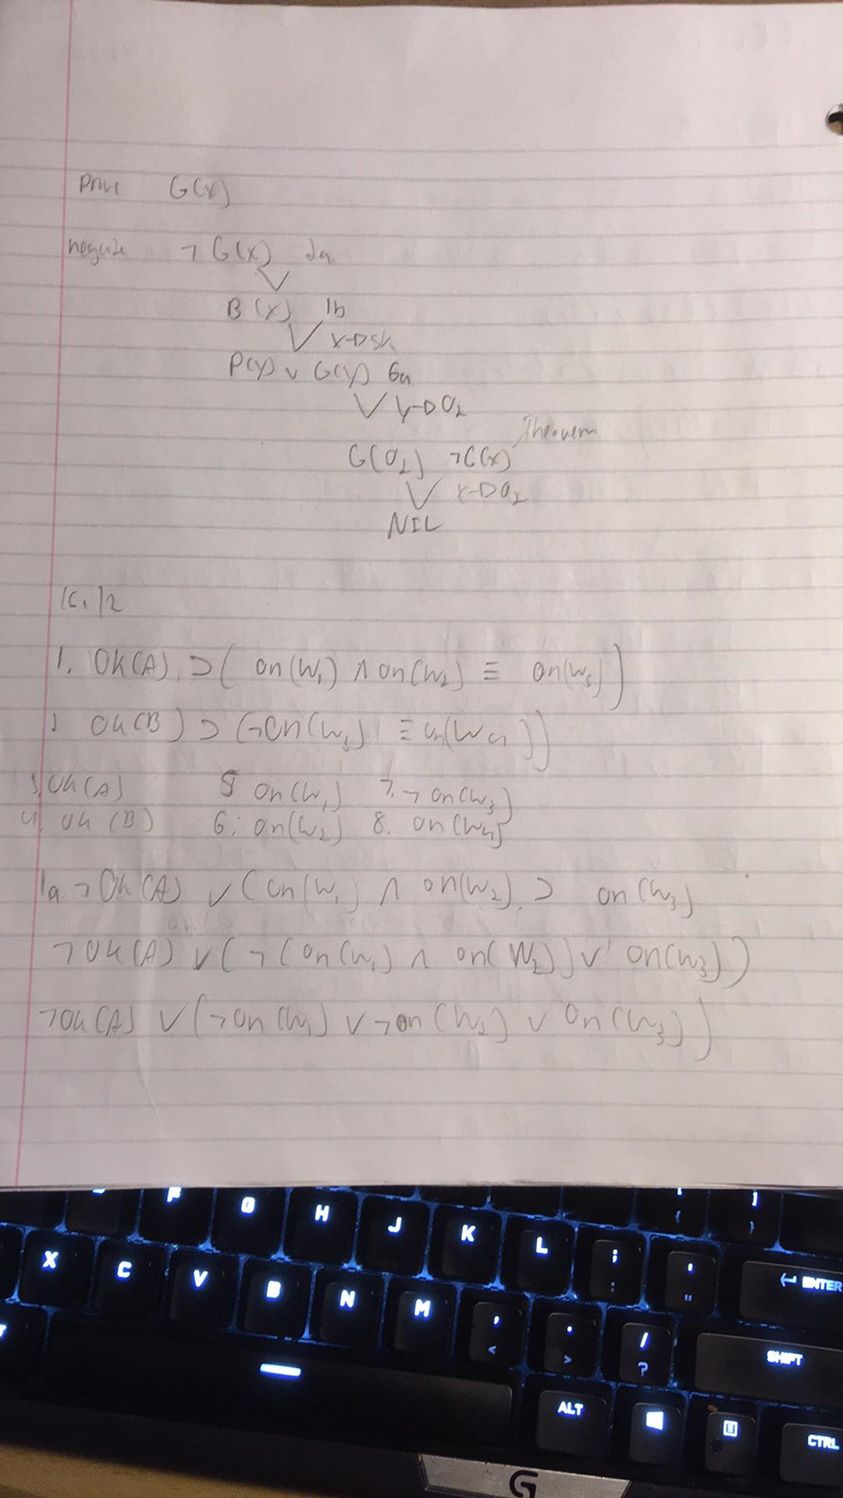 Prove G(x)
negate ¬G(x) 2a.
B(x) 1b
x→sk
P(y) ∨ G(y) 6a
y→O₂
Theorem
G(O₂) ¬G(x)
x→O₂
NIL
12
1. Ok(A) ⊃ ( on(W₁) ∧ on(W₂) ≡ on(W₃))
Ok(B) ⊃ (¬on(W₃) ≡ on(W₄))
3. Ok(A) 5 on(W₁) 7. ¬on(W₃)
4. Ok(B) 6. on(W₂) 8. on(W₄)
1a ¬Ok(A) ∨ (on(W₁) ∧ on(W₂) ⊃ on(W₃)
¬Ok(A) ∨ (¬(on(W₁) ∧ on(W₂)) ∨ on(W₃))
¬Ok(A) ∨ (¬on(W₁) ∨ ¬on(W₂) ∨ on(W₃))
P G H J K L ; : ' " ENTER
X C V B N M , < . > / ? SHIFT
ALT CTRL
G